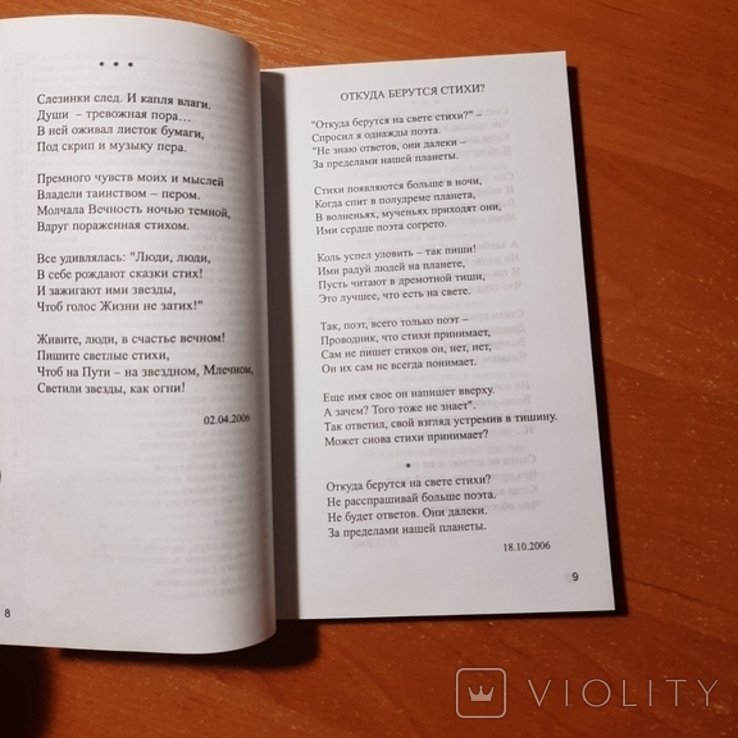 * * *
Слезинки след. И капля влаги.
Души – тревожная пора...
В ней оживал листок бумаги,
Под скрип и музыку пера.
Премного чувств моих и мыслей
Владели таинством – пером.
Молчала Вечность ночью темной,
Вдруг пораженная стихом.
Все удивлялась: "Люди, люди,
В себе рождают сказки стих!
И зажигают ими звезды,
Чтоб голос Жизни не затих!"
Живите, люди, в счастье вечном!
Пишите светлые стихи,
Чтоб на Пути – на звездном, Млечном,
Светили звезды, как огни!
02.04.2006
8
ОТКУДА БЕРУТСЯ СТИХИ?
"Откуда берутся на свете стихи?" –
Спросил я однажды поэта.
"Не знаю ответов, они далеки –
За пределами нашей планеты.
Стихи появляются больше в ночи,
Когда спит в полудреме планета,
В волненьях, мученьях приходят они,
Ими сердце поэта согрето.
Коль успел уловить – так пиши!
Ими радуй людей на планете,
Пусть читают в дремотной тиши,
Это лучшее, что есть на свете.
Так, поэт, всего только поэт –
Проводник, что стихи принимает,
Сам не пишет стихов он, нет, нет,
Он их сам не всегда понимает.
Еще имя свое он напишет вверху.
А зачем? Того тоже не знает".
Так ответил, свой взгляд устремив в тишину.
Может снова стихи принимает?
*
Откуда берутся на свете стихи?
Не расспрашивай больше поэта.
Не будет ответов. Они далеки.
За пределами нашей планеты.
18.10.2006
9
VIOLITY